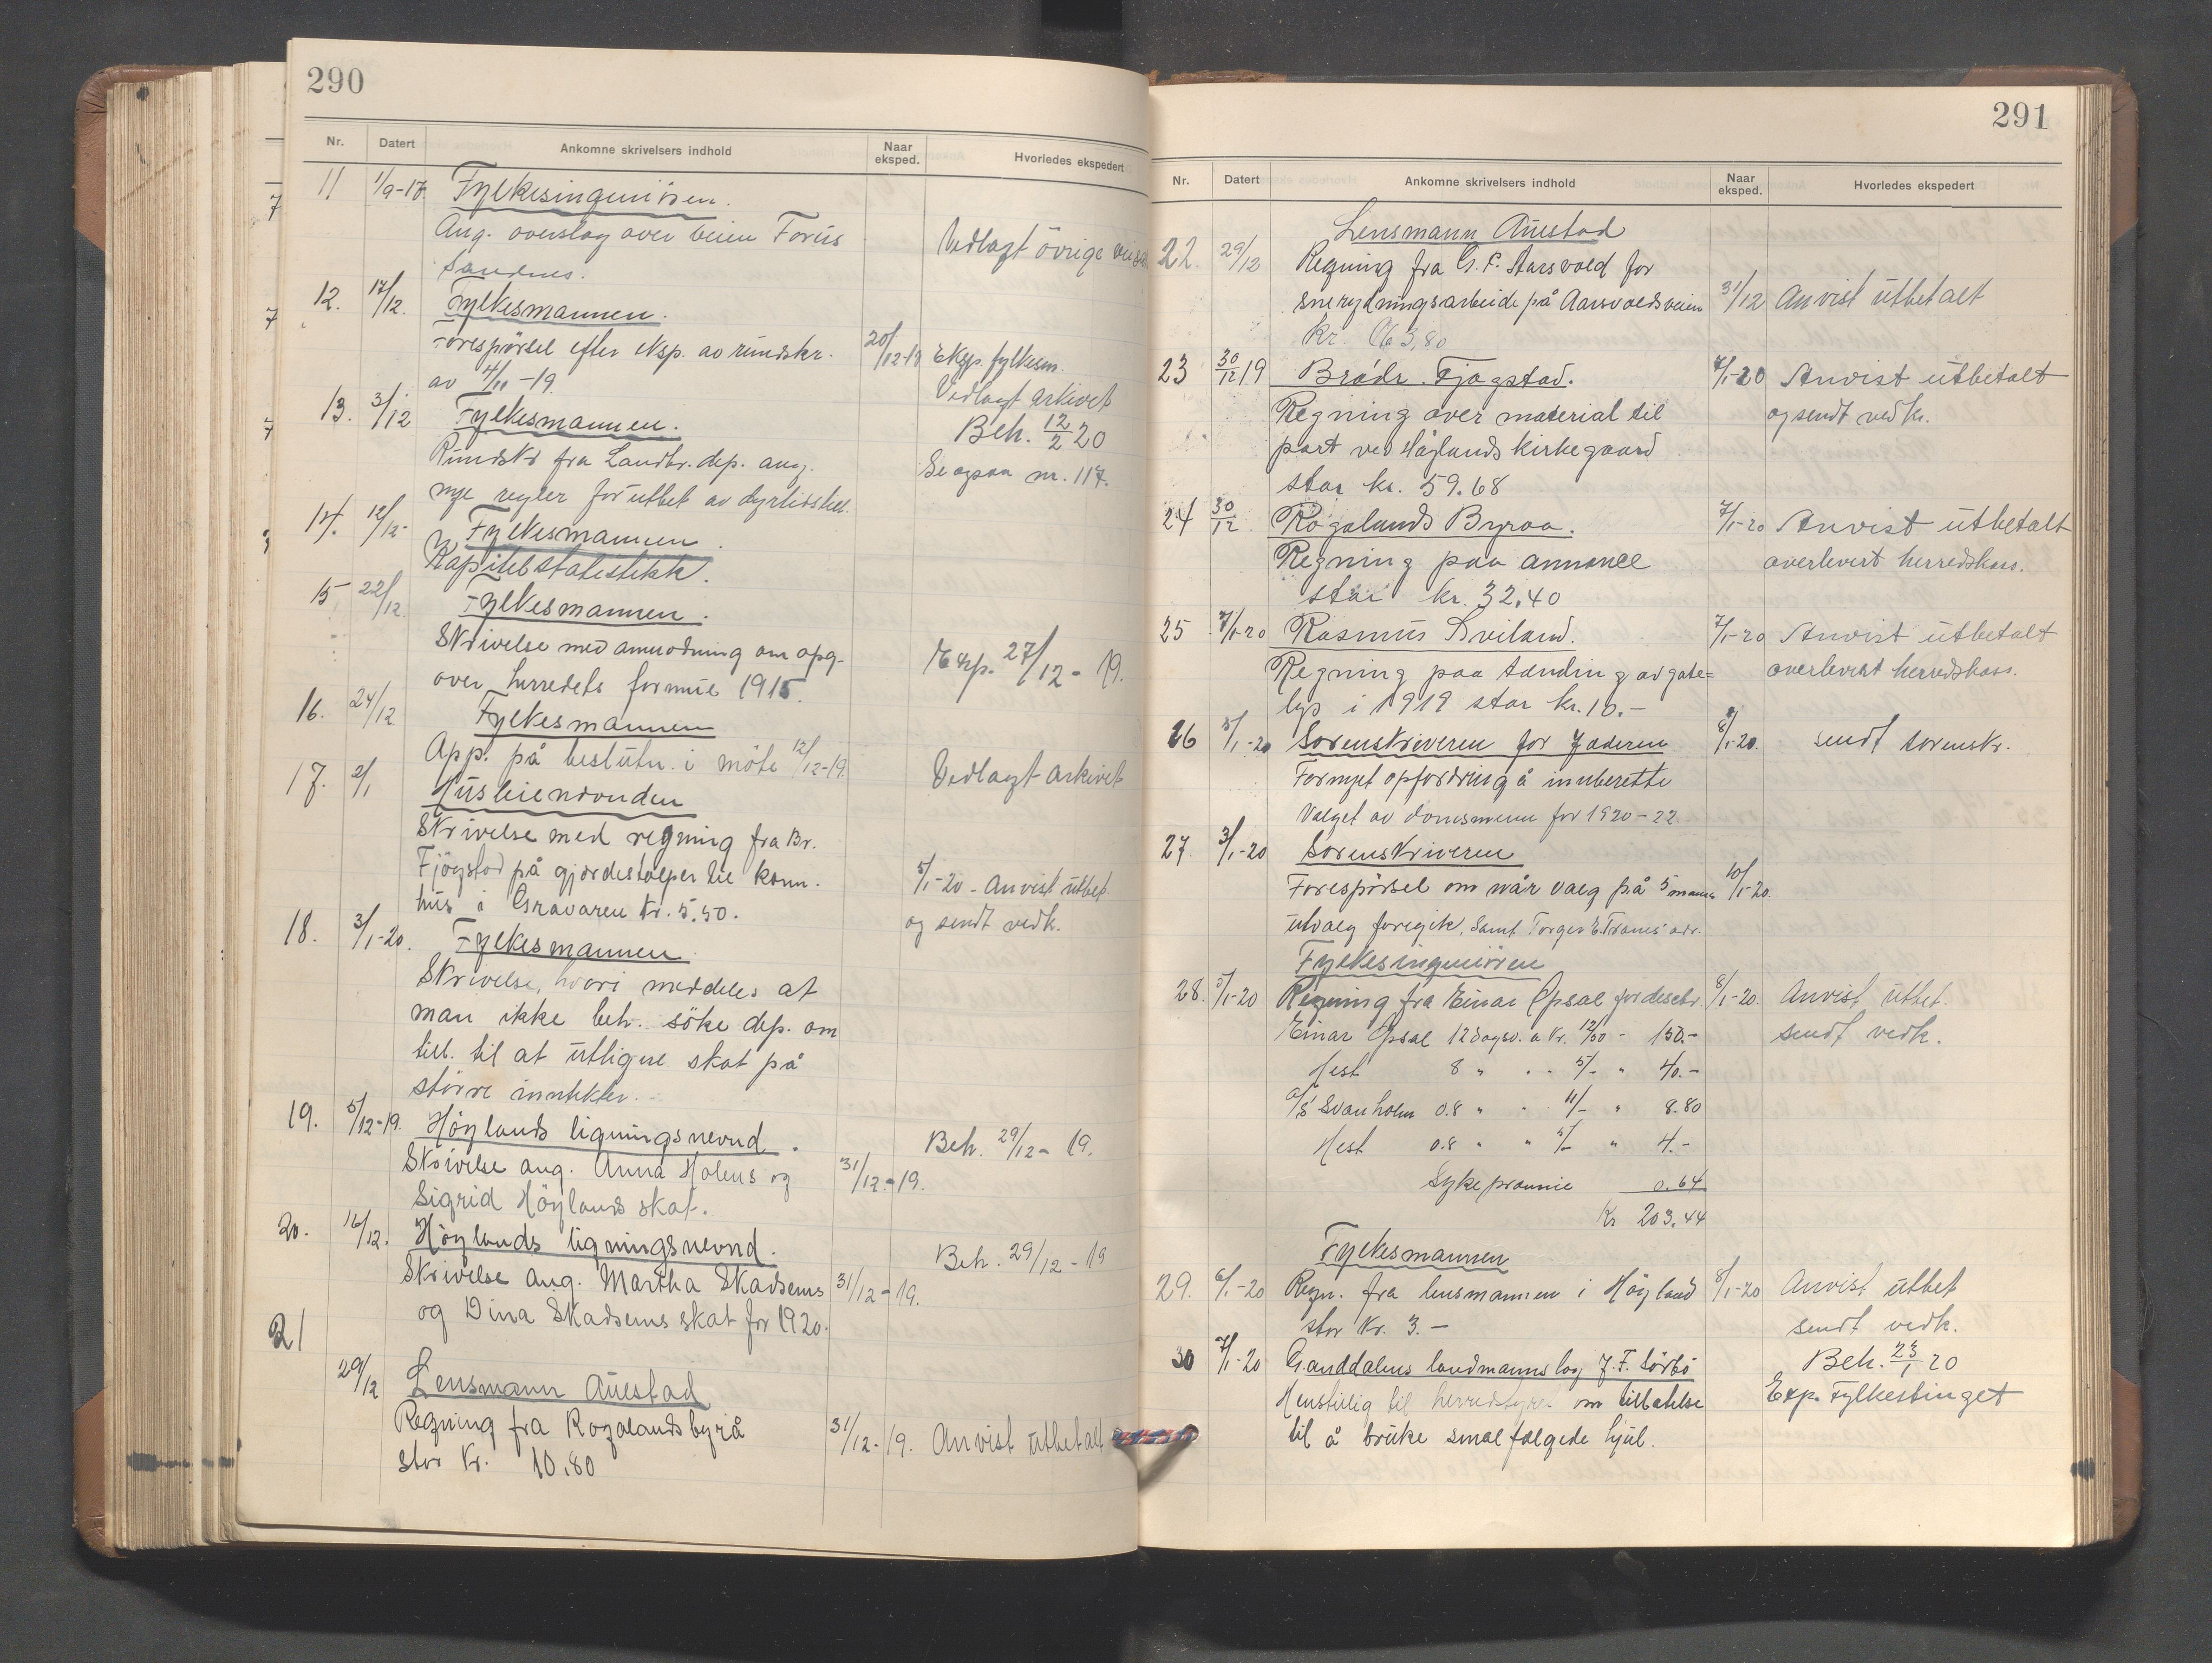 290
Nr. Datert Ankomne skrivelsers indhold Naar eksped. Hvorledes ekspedert
11 1/9-17 Fylkesingeniören.
Ang. overslag over veien Forus
Sandnes. Vedlagt övrige
12. 17/12. Fylkesmannen.
Forespörsel efter eksp. av rundskr. 20/12-19 Eksp. fylkesm.
av 4/11-19 Vedlagt arkivet
13. 3/12 Fylkesmannen. Beh. 12/2 20
Rundskr fra Landbr. dep. ang. Se ogsaa nr. 117.
nye regler for utbet av dyrtidstill.
14. 12/12- Fylkesmannen.
Kapitelstatistikk.
15 22/12 Fylkesmannen.
Skrivelse med anmodning om opg.
over herredets formue 1915. Exp. 27/12- 19.
16. 24/12 Fylkesmannen
App. på beslutn. i möte 12/12-19. Vedlagt arkivet
17. 2/1 Husleienevnden
Skrivelse med regning fra Br.
Fjögstad på gjerdestolper til kom. 5/1-20 - Anvist utbet.
hus i Gravaren kr. 5.50. og sendt vedk.
18. 3/1-20. Fylkesmannen
Skrivelse, hvori meddeles at
man ikke beh. söke dep. om
till. til at utligne skat på
större inntekter.
19. 5/12-19. Höylands ligningsnevnd. Beh. 29/12- 19.
Skrivelse ang. Anna Holens og 31/12-19.
Sigrid Höylands skat.
20. 16/12. Höylands ligningsnevnd. Beh. 29/12-19
Skrivelse ang. Martha Skadsems 31/12-19.
og Dina Skadsems skat for 1920.
21
29/12 Lensmann Auestad
Regning fra Rogalandsbyrå 31/12-19. Anvist utbetalt
stor kr. 10.80
291
Nr. Datert Ankomne skrivelsers indhold Naar eksped. Hvorledes ekspedert
Lensmann Auestad
22. 29/12 Regning fra G. F. Aarsvold for
snerydningsarbeide på Aarsvoldsveien 31/12 Anvist utbetalt
kr. 63,80
23 30/12 19 Brödr. Fjogstad. 7/1-20 Anvist utbetalt
Regning over material til og sendt vedk.
port ved Höylands kirkegaard
stor kr. 59.68
24 30/12 Rogalands Byraa. 7/1-20 Anvist utbetalt
Regning paa annonce overlevert herredskass.
stor kr. 32.40
25 7/1-20 Rasmus Sviland. 7/1-20 Anvist utbetalt
Regning paa tænding av gate= overlevert herredskass.
lys i 1919 stor kr. 10.-
26 5/1-20 Sorenskriveren for Jæderen 8/1-20. sendt sorenskr.
Fornyet opfordring å innberette
Valget av domsmenn for 1920-22.
27. 3/1-20 Sorenskriveren
Forespörsel om når valg på 5 manns 10/1-20.
utvalg foregik, samt Torger E. Trones' adr.
Fylkesingeniören
28. 5/1-20 Regning fra Einar Opsal for 8/1-20. Anvist utbet.
Einar Opsal 12 dagsv. a kr. 12/50 - 150.- sendt vedk.
Hest 8 " . . 5/- " 40.-
A/S Svanholm 0.8 " . 11/- " 8.80
Hest 0.8 " " 5/- " 4.-
Sykepremie 0.64
Kr 203.44
Fylkesmannen
29. 6/1-20 Regn. fra lensmannen i Höyland 8/1-20 Anvist utbet
stor kr. 3.- sendt vedk.
30 7/1-20 Ganddalens landmannslag J. F. Sörbö Beh. 23/1 20
Henstillig til herredstyre. om tillatelse Exp. Fylkestinget
til å bruke smalfælgede hjul.